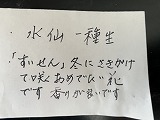 ・水仙 一種生
・「すいせん」冬にさきがけ
て咲くあめでびな花
です 香りが良いです